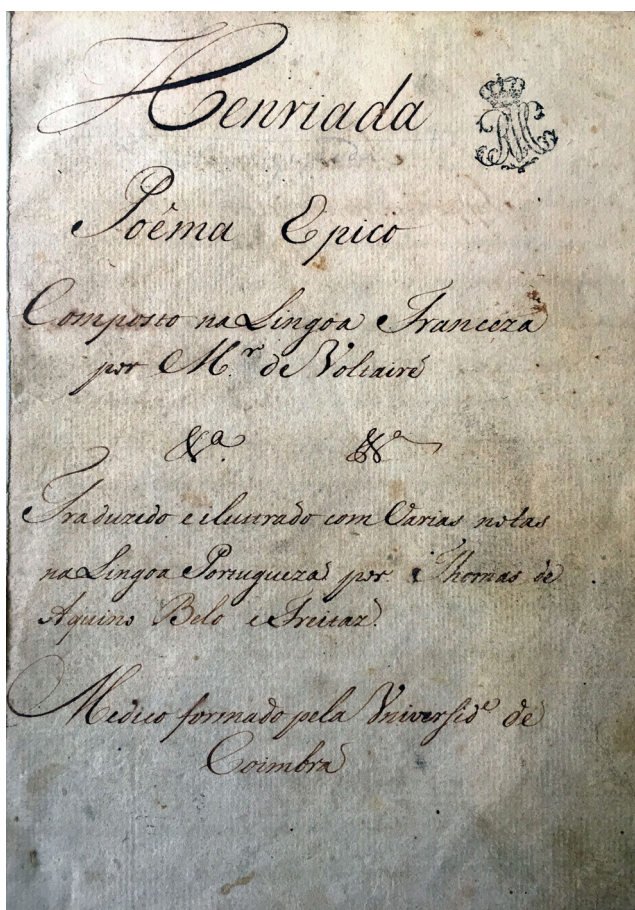 Henriada
Poêma Epico
Composto na Lingoa Franceza
por M.r de Voltaire
&.a &.a
Traduzido e ilustrado com Varias notas
na Lingoa Portugueza por Thomas de
Aquino Belo e Freitas.
Medico formado pela Universid.e de
Coimbra